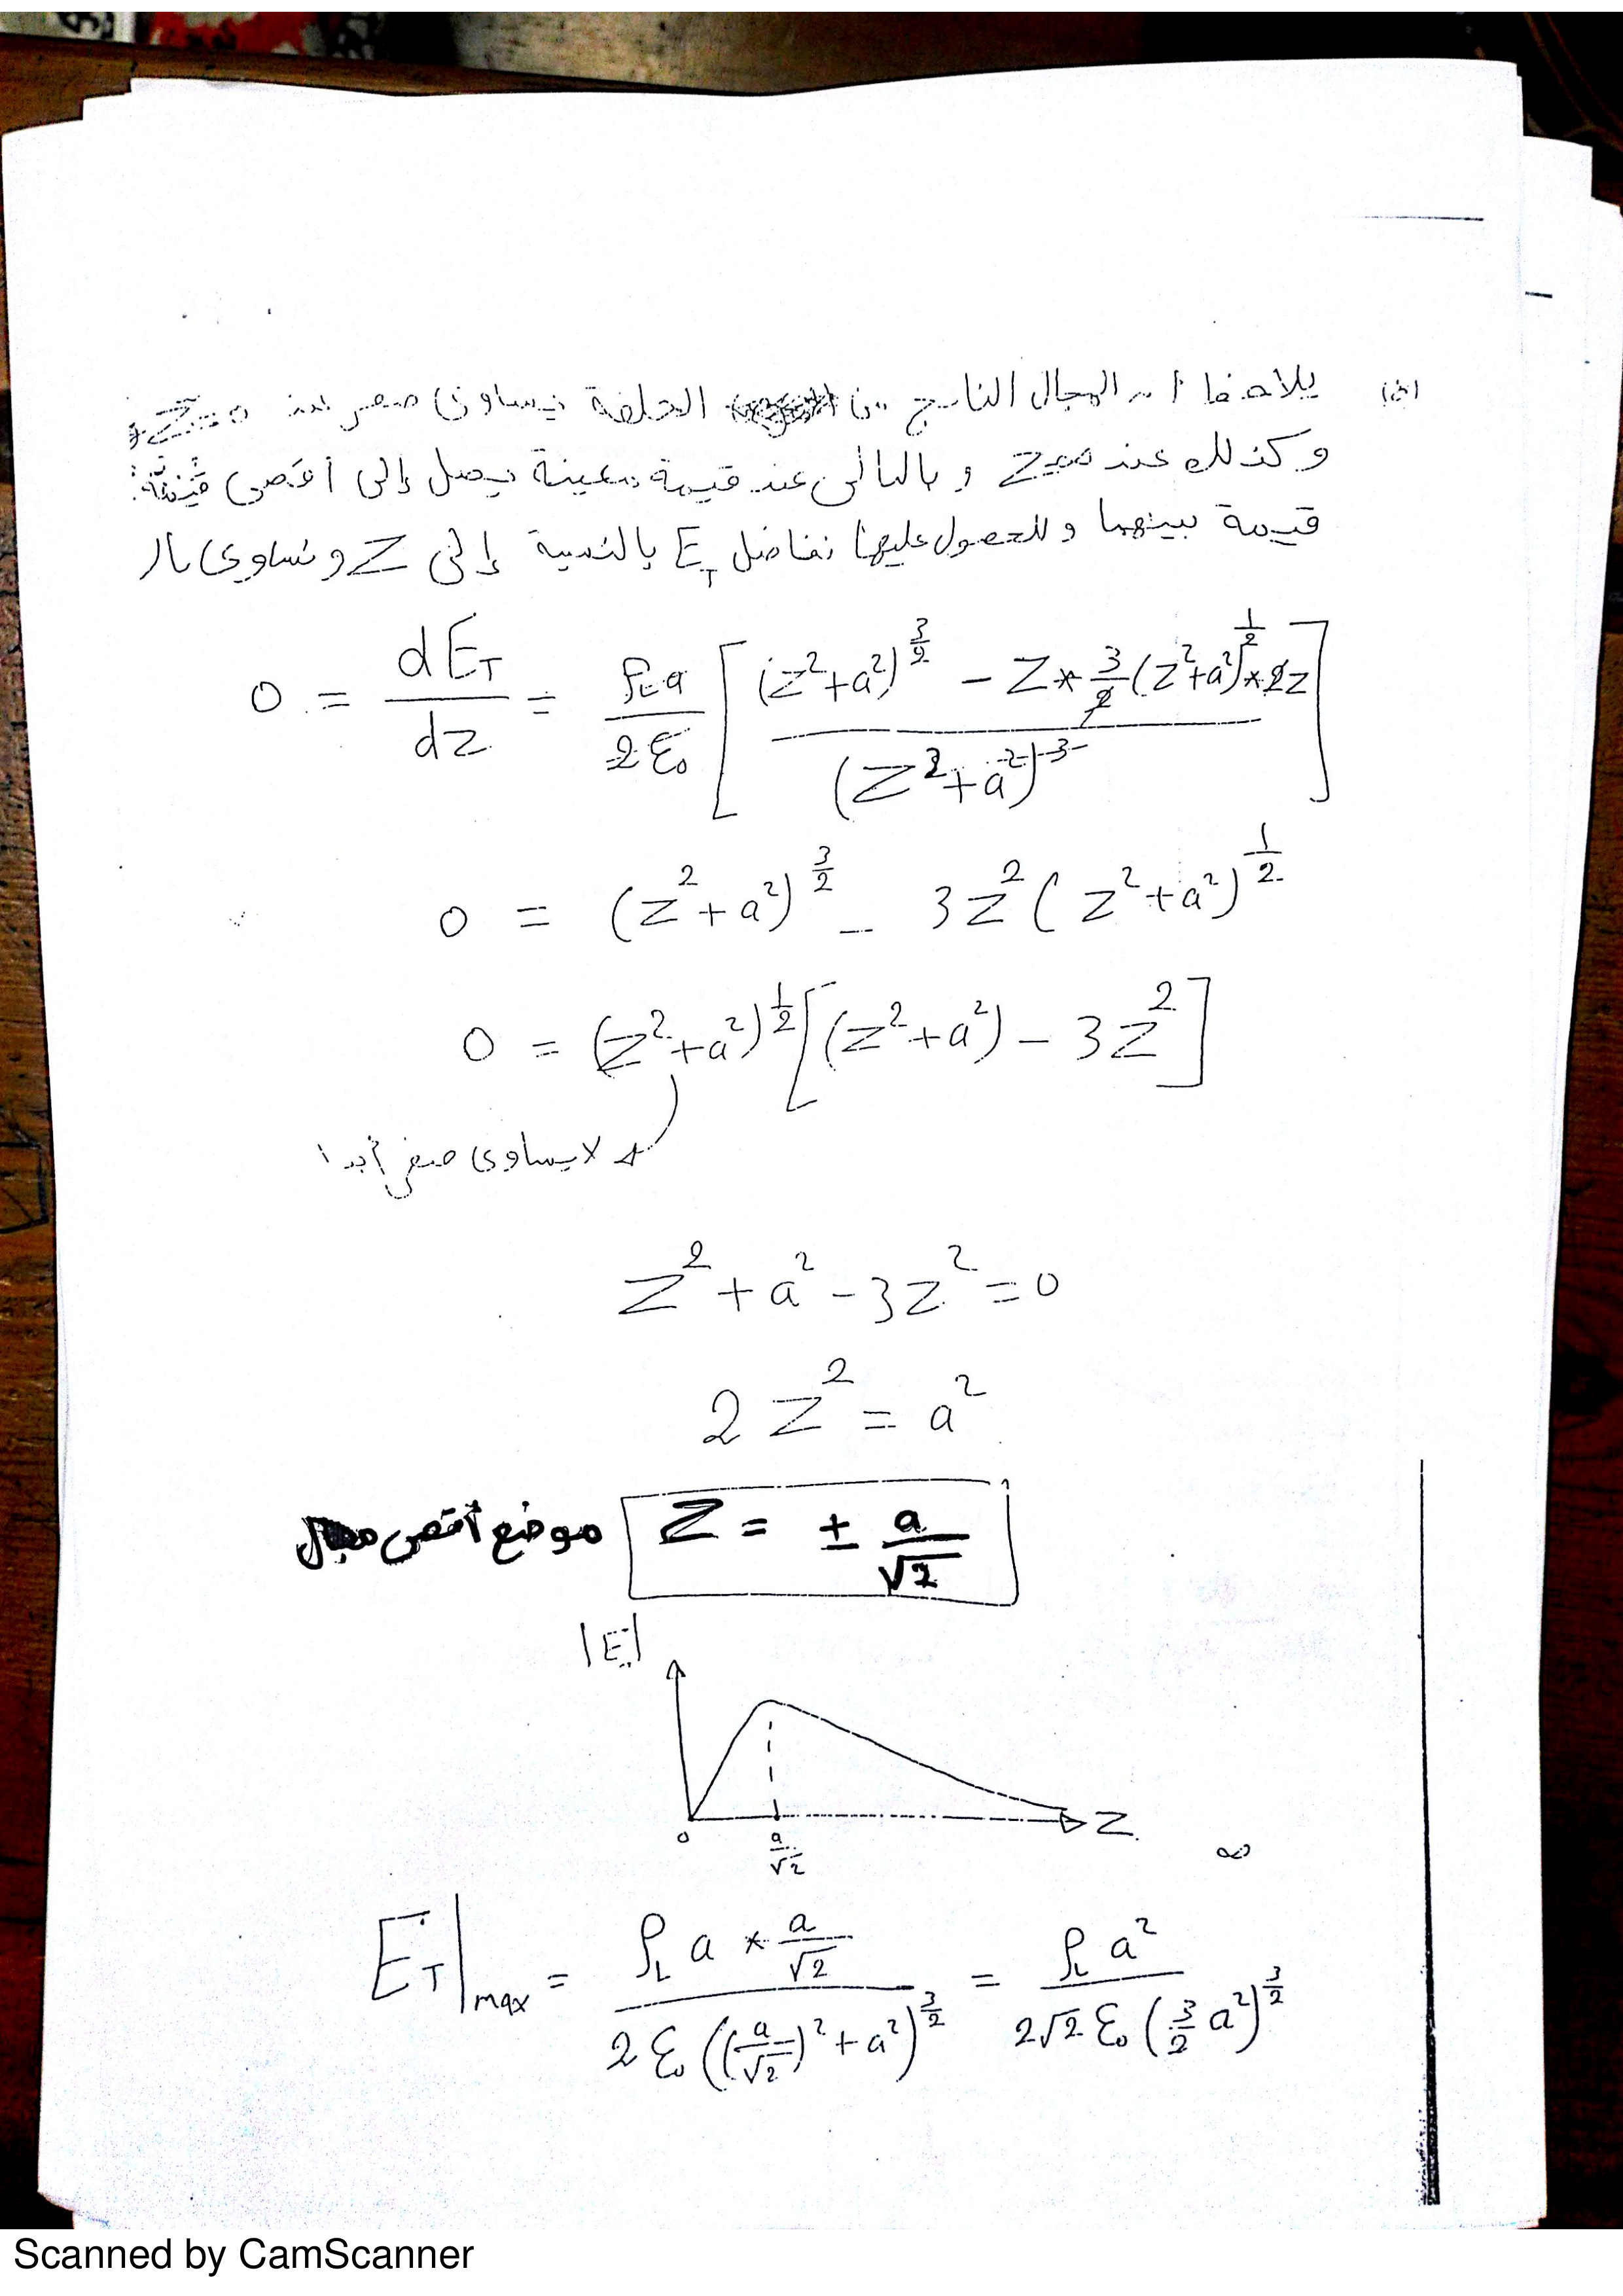 يلاحظ أن المجال الناتج من الحلقة يساوى صفر عند Z=0
وكذلك عند Z=∞ وبالتالى عند قيمة معينة يصل إلى أقصى
قيمة بينهما وللحصول عليها نفاضل E_T بالنسبة إلى Z ونساوى بالـ
0 = dE_T/dz = ρ_L a/2ε₀ [ ((z²+a²)^(3/2) - Z * 3/2 (z²+a²)^(1/2) * 2z) / (z²+a²)^3 ]
0 = (z²+a²)^(3/2) - 3z² (z²+a²)^(1/2)
0 = (z²+a²)^(1/2) [(z²+a²) - 3z²]
لا يساوى صفر أبدا
z²+a²-3z²=0
2z² = a²
موضع أقصى مجال Z = ± a/√2
|E|
Z
0 a/√2 ∞
E_T|max = ρ_L a * a/√2 / 2ε₀((a/√2)²+a²)^(3/2) = ρ_L a² / 2√2 ε₀ (3/2 a²)^(3/2)
Scanned by CamScanner